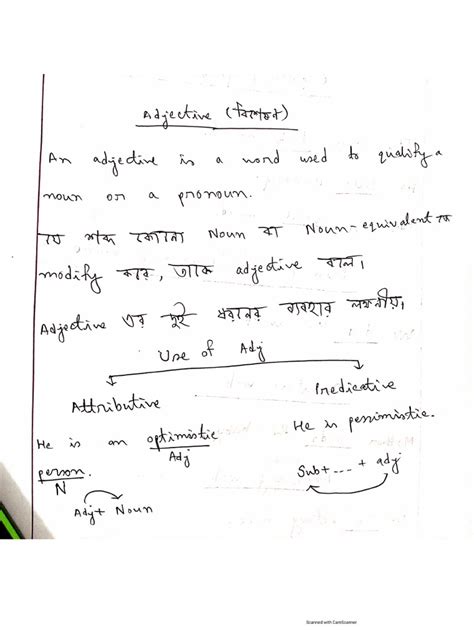 Adjective (বিশেষণ)
An adjective is a word used to qualify a
noun or a pronoun.
যে শব্দ কোনো Noun বা Noun-equivalent কে
modify করে, তাকে adjective বলে।
Adjective এর দুই ধরনের ব্যবহার লক্ষনীয়।
Use of Adj
Attributive
Predicative
He is an optimistic
Adj
person.
N
Adj + Noun
He is pessimistic.
Sub + --- + adj
Scanned with CamScanner